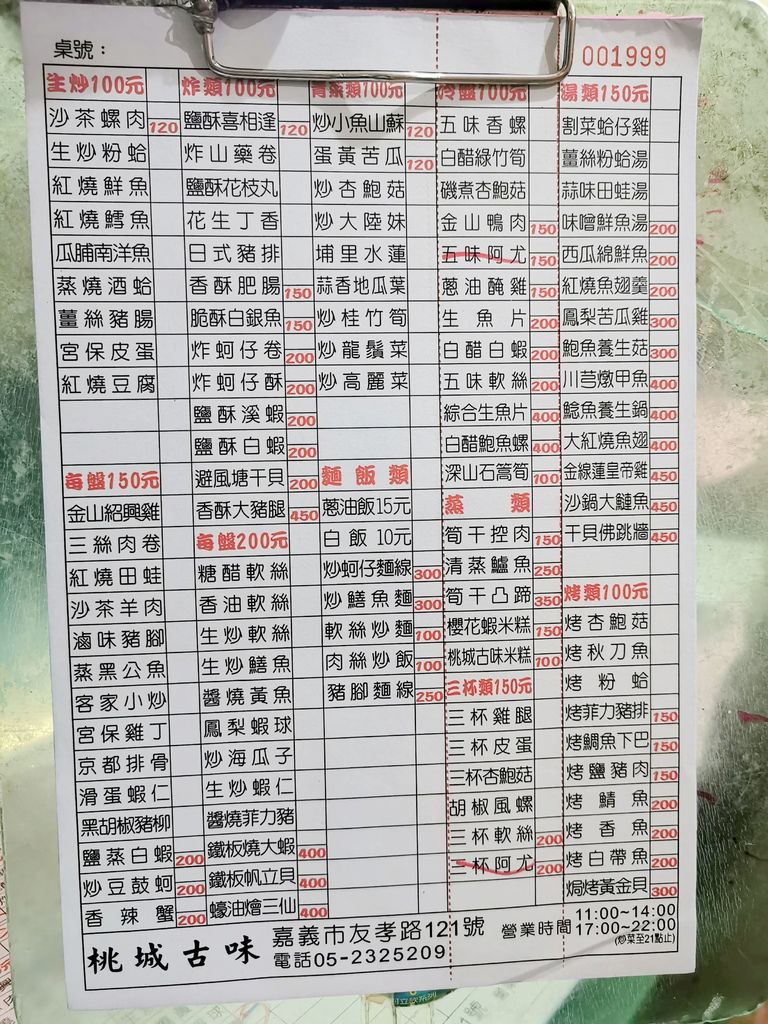 桌號：
001999
生炒100元
沙茶螺肉 120
生炒粉蛤
紅燒鮮魚
紅燒鱈魚
瓜脯南洋魚
蒸燒酒蛤
薑絲豬腸
宮保皮蛋
紅燒豆腐
每盤150元
金山紹興雞
三絲肉卷
紅燒田蛙
沙茶羊肉
滷味豬腳
蒸黑公魚
客家小炒
宮保雞丁
京都排骨
滑蛋蝦仁
黑胡椒豬柳
鹽蒸白蝦 200
炒豆鼓蚵 200
香辣蟹 200
炸類100元
鹽酥喜相逢 120
炸山藥卷
鹽酥花枝丸
花生丁香
日式豬排
香酥肥腸 150
脆酥白銀魚 150
炸蚵仔卷 200
炸蚵仔酥 200
鹽酥溪蝦 200
鹽酥白蝦 200
避風塘干貝 200
香酥大豬腿 450
每盤200元
糖醋軟絲
香油軟絲
生炒軟絲
生炒鱔魚
醬燒黃魚
鳳梨蝦球
炒海瓜子
生炒蝦仁
醬燒菲力豬
鐵板燒大蝦 400
鐵板帆立貝 400
蠔油燴三仙 400
青菜類100元
炒小魚山蘇 120
蛋黃苦瓜 120
炒杏鮑菇
炒大陸妹
埔里水蓮
蒜香地瓜葉
炒桂竹筍
炒龍鬚菜
炒高麗菜
麵飯類
蔥油飯15元
白飯 10元
炒蚵仔麵線 300
炒鱔魚麵 300
軟絲炒麵 100
肉絲炒飯 100
豬腳麵線 250
冷盤100元
五味香螺
白醋綠竹筍
磯煮杏鮑菇
金山鴨肉 150
五味阿尤 150
蔥油醃雞 150
生魚片 200
白醋白蝦 200
五味軟絲 200
綜合生魚片 400
白醋鮑魚螺 400
深山石蒿筍 100
蒸類
筍干控肉 150
清蒸鱸魚 250
筍干凸蹄 350
櫻花蝦米糕 150
桃城古味米糕 100
三杯類150元
三杯雞腿
三杯皮蛋
三杯杏鮑菇
胡椒風螺
三杯軟絲 200
三杯阿尤 200
湯類150元
割菜蛤仔雞
薑絲粉蛤湯
蒜味田蛙湯
味噌鮮魚湯 200
西瓜綿鮮魚 200
紅燒魚翅羹 200
鳳梨苦瓜雞 300
鮑魚養生菇 300
川芎燉甲魚 400
鯰魚養生鍋 400
大紅燒魚翅 400
金線蓮皇帝雞 450
沙鍋大鰱魚 450
干貝佛跳牆 450
烤類100元
烤杏鮑菇
烤秋刀魚
烤粉蛤
烤菲力豬排 150
烤鯛魚下巴 150
烤鹽豬肉 150
烤鯖魚 200
烤香魚 200
烤白帶魚 200
焗烤黃金貝 300
桃城古味
嘉義市友孝路121號
電話05-2325209
營業時間 11:00~14:00
17:00~22:00
(炒菜至21點止)